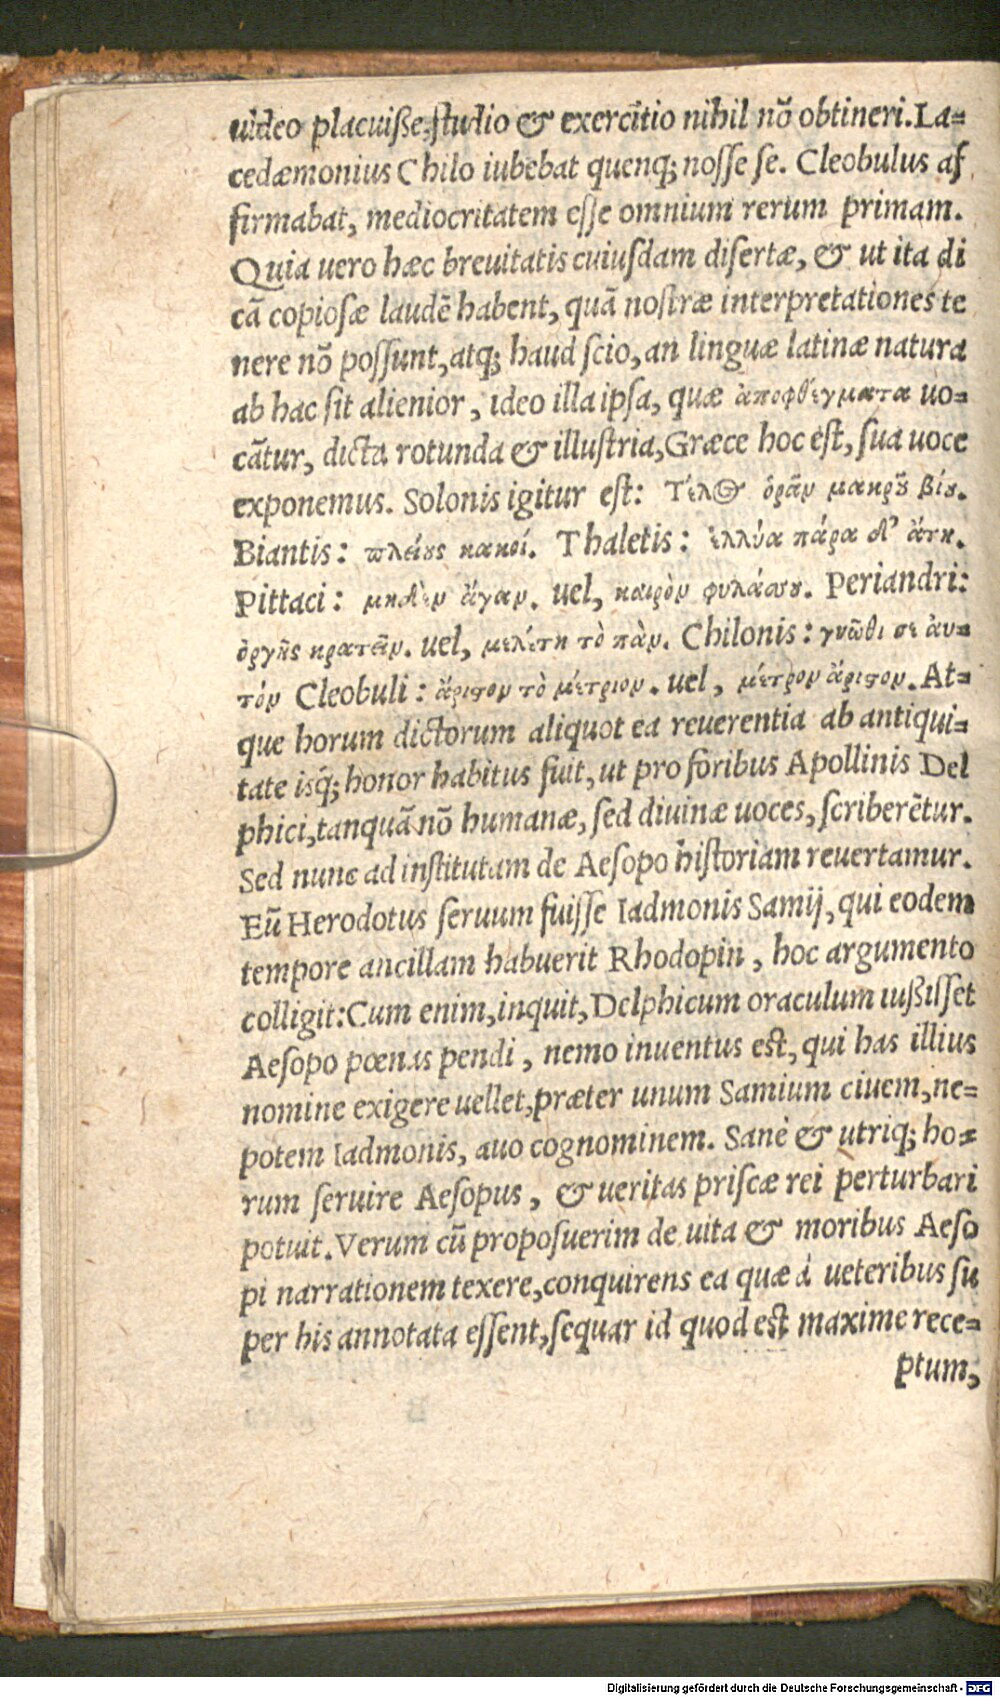 uideo placuiße, studio & exercitio nihil nõ obtineri. La=
cedæmonius Chilo iubebat quenq; nosse se. Cleobulus af
firmabat, mediocritatem esse omnium rerum primam.
Quia uero hæc breuitatis cuiusdam disertæ, & ut ita di
cã copiosæ laudẽ habent, quã nostræ interpretationes te
nere nõ possunt, atq; haud scio, an linguæ latinæ natura
ab hac sit alienior, ideo illa ipsa, quæ ἀποφθέγματα uo=
cãtur, dicta rotunda & illustria, Græce hoc est, sua uoce
exponemus. Solonis igitur est: Τέλος ὁρᾶν μακροῦ βίου.
Biantis: πλείους κακοί. Thaletis: ἐλλύα πάρα δ' ἄτη.
Pittaci: μηδὲν ἄγαν. uel, καιρὸν φυλάσσου. Periandri:
ὀργῆς κρατεῖν. uel, μελέτη τὸ πὰν. Chilonis: γνῶθι σε ἀυ=
τόν Cleobuli: ἄριστον τὸ μέτριον. uel, μέτρον ἄριστον. At=
que horum dictorum aliquot ea reuerentia ab antiqui=
tate isq́; honor habitus fuit, ut pro foribus Apollinis Del
phici, tanquã nõ humanæ, sed diuinæ uoces, scriberẽtur.
Sed nunc ad institutam de Aesopo historiam reuertamur.
Eũ Herodotus seruum fuisse Iadmonis Samij, qui eodem
tempore ancillam habuerit Rhodopin, hoc argumento
colligit: Cum enim, inquit, Delphicum oraculum iußisset
Aesopo pœnas pendi, nemo inuentus est, qui has illius
nomine exigere uellet, præter unum Samium ciuem, ne=
potem Iadmonis, auo cognominem. Sanè & utriq; ho=
rum seruire Aesopus, & ueritas priscæ rei perturbari
potuit. Verum cũ proposuerim de uita & moribus Aeso
pi narrationem texere, conquirens ea quæ à ueteribus su
per his annotata essent, sequar id quod est maxime rece=
ptum,
Digitalisierung gefördert durch die Deutsche Forschungsgemeinschaft - DFG